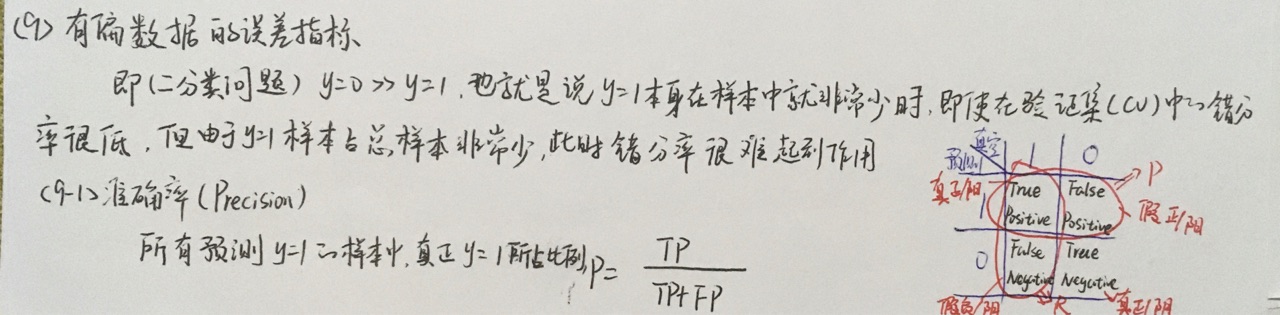 (9) 有偏数据的误差指标、
即(二分类问题) y=0 >> y=1, 也就是说 y=1本身在样本中就非常少时, 即使在验证集(CV)中的错分
率很低, 但由于y=1样本占总样本非常少, 此时错分率很难起到作用
(9-1) 准确率 (Precision)
所有预测 y=1的样本中, 真正 y=1所占比例, P= TP
TP+FP
真实
预测
1 0
P
真正/阳
1
True False
Positive Positive
假正/阳
0
False True
Negative Negative
假负/阴
R
真正/阴